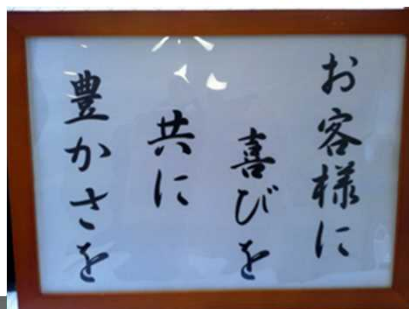 お客様に
喜びを
共に
豊かさを